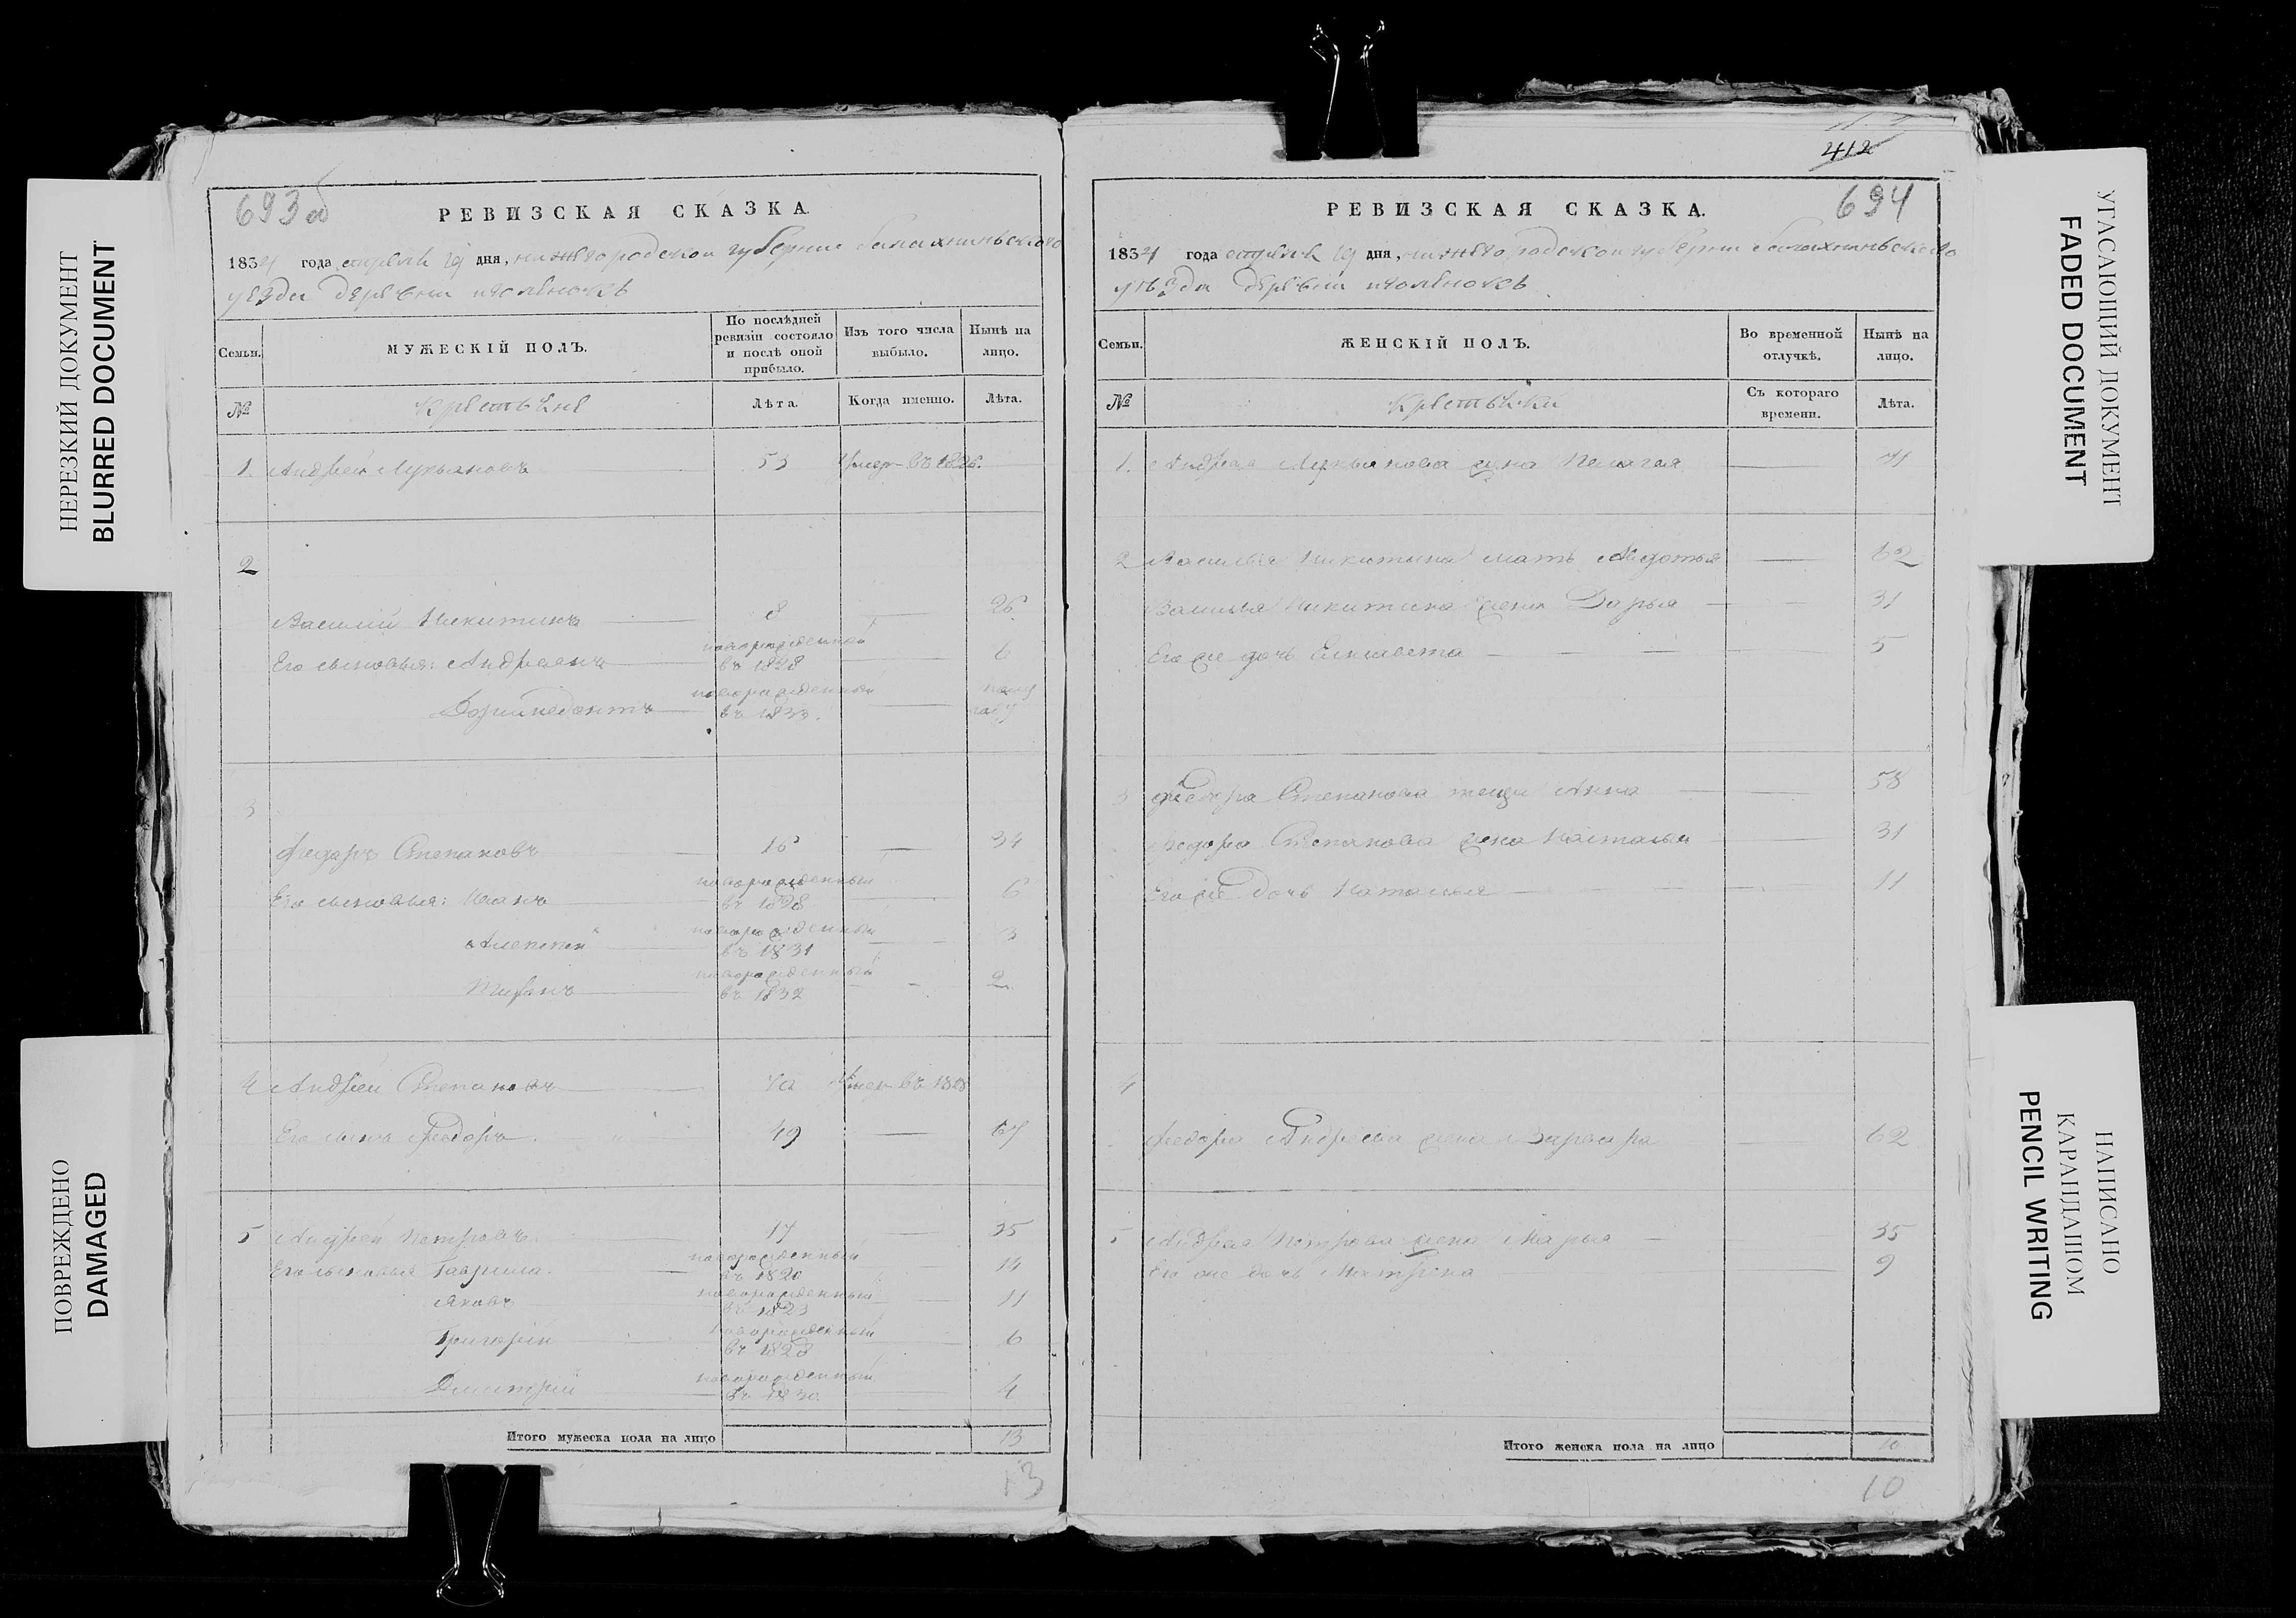 НЕРЕЗКИЙ ДОКУМЕНТ
BLURRED DOCUMENT
ПОВРЕЖДЕНО
DAMAGED
693об
РЕВИЗСКАЯ СКАЗКА.
1834 года апреля 19 дня, нижегородской губернии балахниньского
уезда деревни
Семьи. МУЖЕСКІЙ ПОЛЪ. По послѣдней ревизіи состояло и послѣ оной прибыло. Изъ того числа выбыло. Нынѣ на лицо.
№ крестьяне Лѣта. Когда именно. Лѣта.
1. Андрей Лукьяновъ 53 Умеръ въ 1826.
2
Василий Никитинъ 8 — 26
Его сыновья: Андреянъ новорожденный въ 1828 — 6
Доримедонтъ новорожденный въ 1833. — полу году
3
Федоръ Степановъ 16 — 34
Его сыновья: Иванъ новорожденный въ 1828 — 6
Алексей новорожденный въ 1831 — 3
новорожденный въ 1832 — 2
4 Андрей Степановъ Умеръ въ 1828
Его сынъ Федоръ 49 — 67
5 Андрей Петровъ 17 — 35
Его сыновья Гаврила новорожденный въ 1820 14
Яковъ новорожденный въ 1823 11
Григорій новорожденный въ 1828 6
Дмитрей новорожденный въ 1830. 4
Итого мужеска пола на лицо 13
13
412
694
РЕВИЗСКАЯ СКАЗКА.
1834 года апреля 19 дня, нижегородской губернии балахниньского
уѣзда деревни
Семьи. ЖЕНСКІЙ ПОЛЪ. Во временной отлучкѣ. Нынѣ на лицо.
№ крестьянки Съ котораго времени. Лѣта.
1. Андрея Лукьянова жена Пелагея — 71
2 Василья Никитина мать Авдотья — 62
Василья Никитина жена Дарья — 31
Его же дочь Елисавета — 5
3 Федора Степанова теща Анна — 58
Федора Степанова жена Настасья — 31
Его же дочь Наталья — 11
4
Федора Андреева жена Варвара — 62
5 Андрея Петрова жена Марья — 35
Его же дочь Матрена 9
Итого женска пола на лицо 10
10
УГАСАЮЩИЙ ДОКУМЕНТ
FADED DOCUMENT
НАПИСАНО
КАРАНДАШОМ
PENCIL WRITING